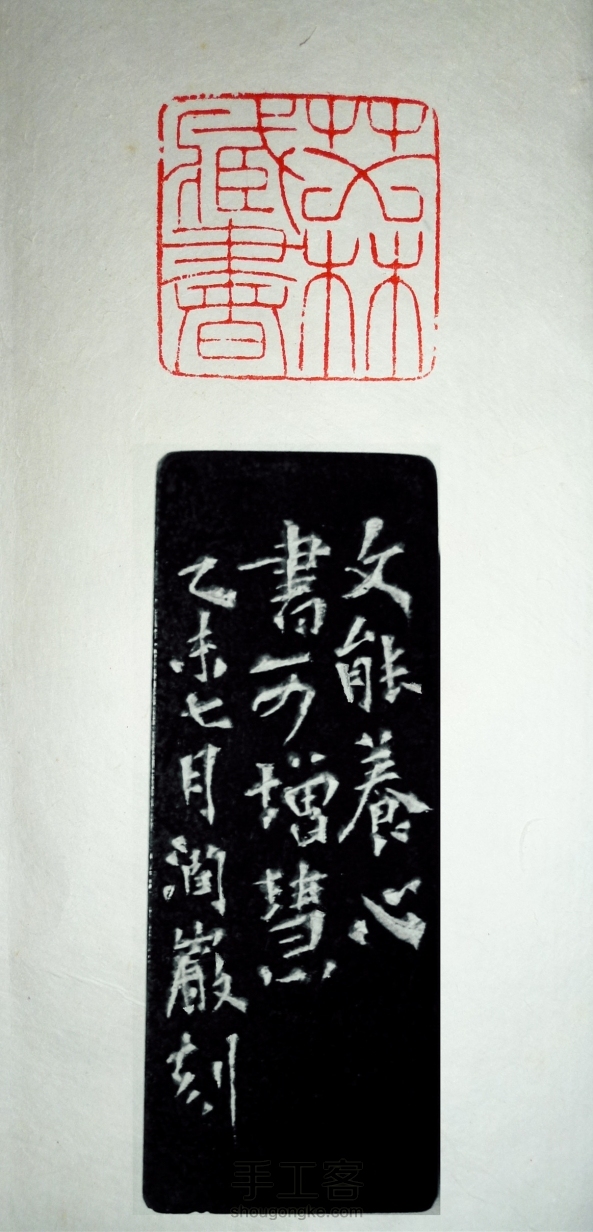 林
臧書
文能養心
書可增慧
乙未七月潤巖刻
手工客
shougongke.com